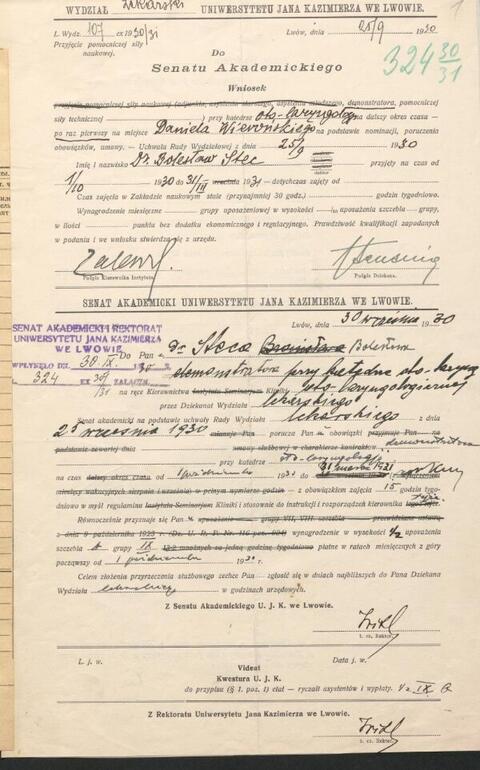 WYDZIAŁ Lekarski UNIWERSYTETU JANA KAZIMIERZA WE LWOWIE.
L. Wydz. 107 ex 1930/31 Lwów, dnia 25/9 1930
Przyjęcie pomocniczej siły
naukowej.
324 30/31
Do
Senatu Akademickiego
Wniosek
przyjęcia pomocniczej siły naukowej (adjunkta, asystenta starszego, asystenta młodszego, demonstratora, pomocniczej
siły technicznej) przy katedrze oto-laryngolog. na dalszy okres czasu —
po raz pierwszy na miejsce Daniela Wierońskiego na podstawie nominacji, poruczenia
obowiązków, umowy. — Uchwała Rady Wydziałowej z dnia 25/9 1930
Imię i nazwisko Dr. Bolesław Stec przyjęty na czas od
1/10 1930 do 31/III września 1931 — dotychczas zajęty od
Czas zajęcia w Zakładzie naukowym stale (przynajmniej 30 godz.) godzin tygodniowo.
Wynagrodzenie miesięczne grupy uposażeniowej w wysokości uposażenia szczebla, grupy,
w ilości punktów bez dodatku ekonomicznego i regulacyjnego. Prawdziwość kwalifikacji zapodanych
w podaniu i we wniosku stwierdza się z urzędu.
Zalewski
Podpis Kierownika Instytutu. Podpis Dziekana.
SENAT AKADEMICKI UNIWERSYTETU JANA KAZIMIERZA WE LWOWIE.
Lwów, dnia 30 września 1930
SENAT AKADEMICKI I REKTORAT
UNIWERSYTETU JANA KAZIMIERZA
WE LWOWIE
WPŁYNĘŁO DN. 30. IX. 30
324 30/31 ZAŁĄCZN.
Do Pana Dr Steca Bronisława Bolesława
demonstratora przy katedrze oto-laryng.
na ręce Kierownictwa Instytutu Seminarjum Kliniki oto-laryngologicznej
przez Dziekanat Wydziału lekarskiego
Senat akademicki na podstawie uchwały Rady Wydz. lekarskiego z dnia
25 września 1930 mianuje Pan porucza Panu obowiązki przyjmuje Pan na
podstawie zawartej umowy służbowej w charakterze kontrakt. demonstratora
przy katedrze oto-laryngologji
na czas dalszy okres czasu — od 1 października 1930 do 31 marca 1931
miesięcy wakacyjnych sierpnia i września) w pełnym wymiarze godzin — z obowiązkiem zajęcia 15 godzin tygo-
dniowo w myśl regulaminu Instytutu Seminarjum Kliniki i stosownie do instrukcji i rozporządzeń kierownika
Równocześnie przyznaje się Panu uposażenie grupy VII, VIII szczebla przewidziane ustawą
z dnia 9 października 1923 (Dz. U. R. P. Nr. 116 poz. 924) wynagrodzenie w wysokości 1/2 uposażenia
szczebla a grupy IX płatne w ratach miesięcznych z góry
począwszy od 1 października 1930.
Celem złożenia przyrzeczenia służbowego zechce Pan zgłosić się w dniach najbliższych do Pana Dziekana
Wydziału lekarskiego w godzinach urzędowych.
Z Senatu Akademickiego U. J. K. we Lwowie.
t. cz. Rektor.
L. j. w. Data j. w.
Videat
Kwestura U. J. K.
do przypisu (§ 1. poz. 1) etat — ryczałt asystentów i wypłaty. 1/2 IX a
Z Rektoratu Uniwersytetu Jana Kazimierza we Lwowie.
t. cz. Rektor.